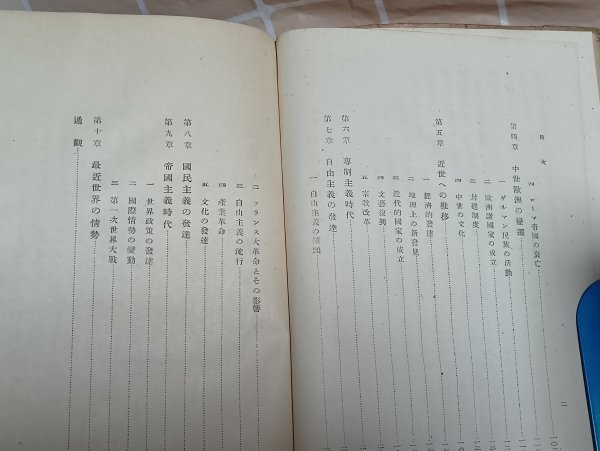 目次
四 ローマ帝國の衰亡
第四章 中世歐洲の變遷
一 ゲルマン民族の活動
二 歐洲諸國家の成立
三 封建制度
四 中世の文化
第五章 近世への推移
一 經濟的發達
二 地理上の新發見
三 近代的國家の成立
四 文藝復興
五 宗敎改革
第六章 專制主義時代
第七章 自由主義の發達
一 自由主義の萠頭
二
二 フランス大革命とその影響
三 自由主義の流行
四 產業革命
五 文化の發達
第八章 國民主義の發達
第九章 帝國主義時代
一 世界政策の發達
二 國際情勢の變動
三 第一次世界大戰
第十章 最近世界の情勢
通觀